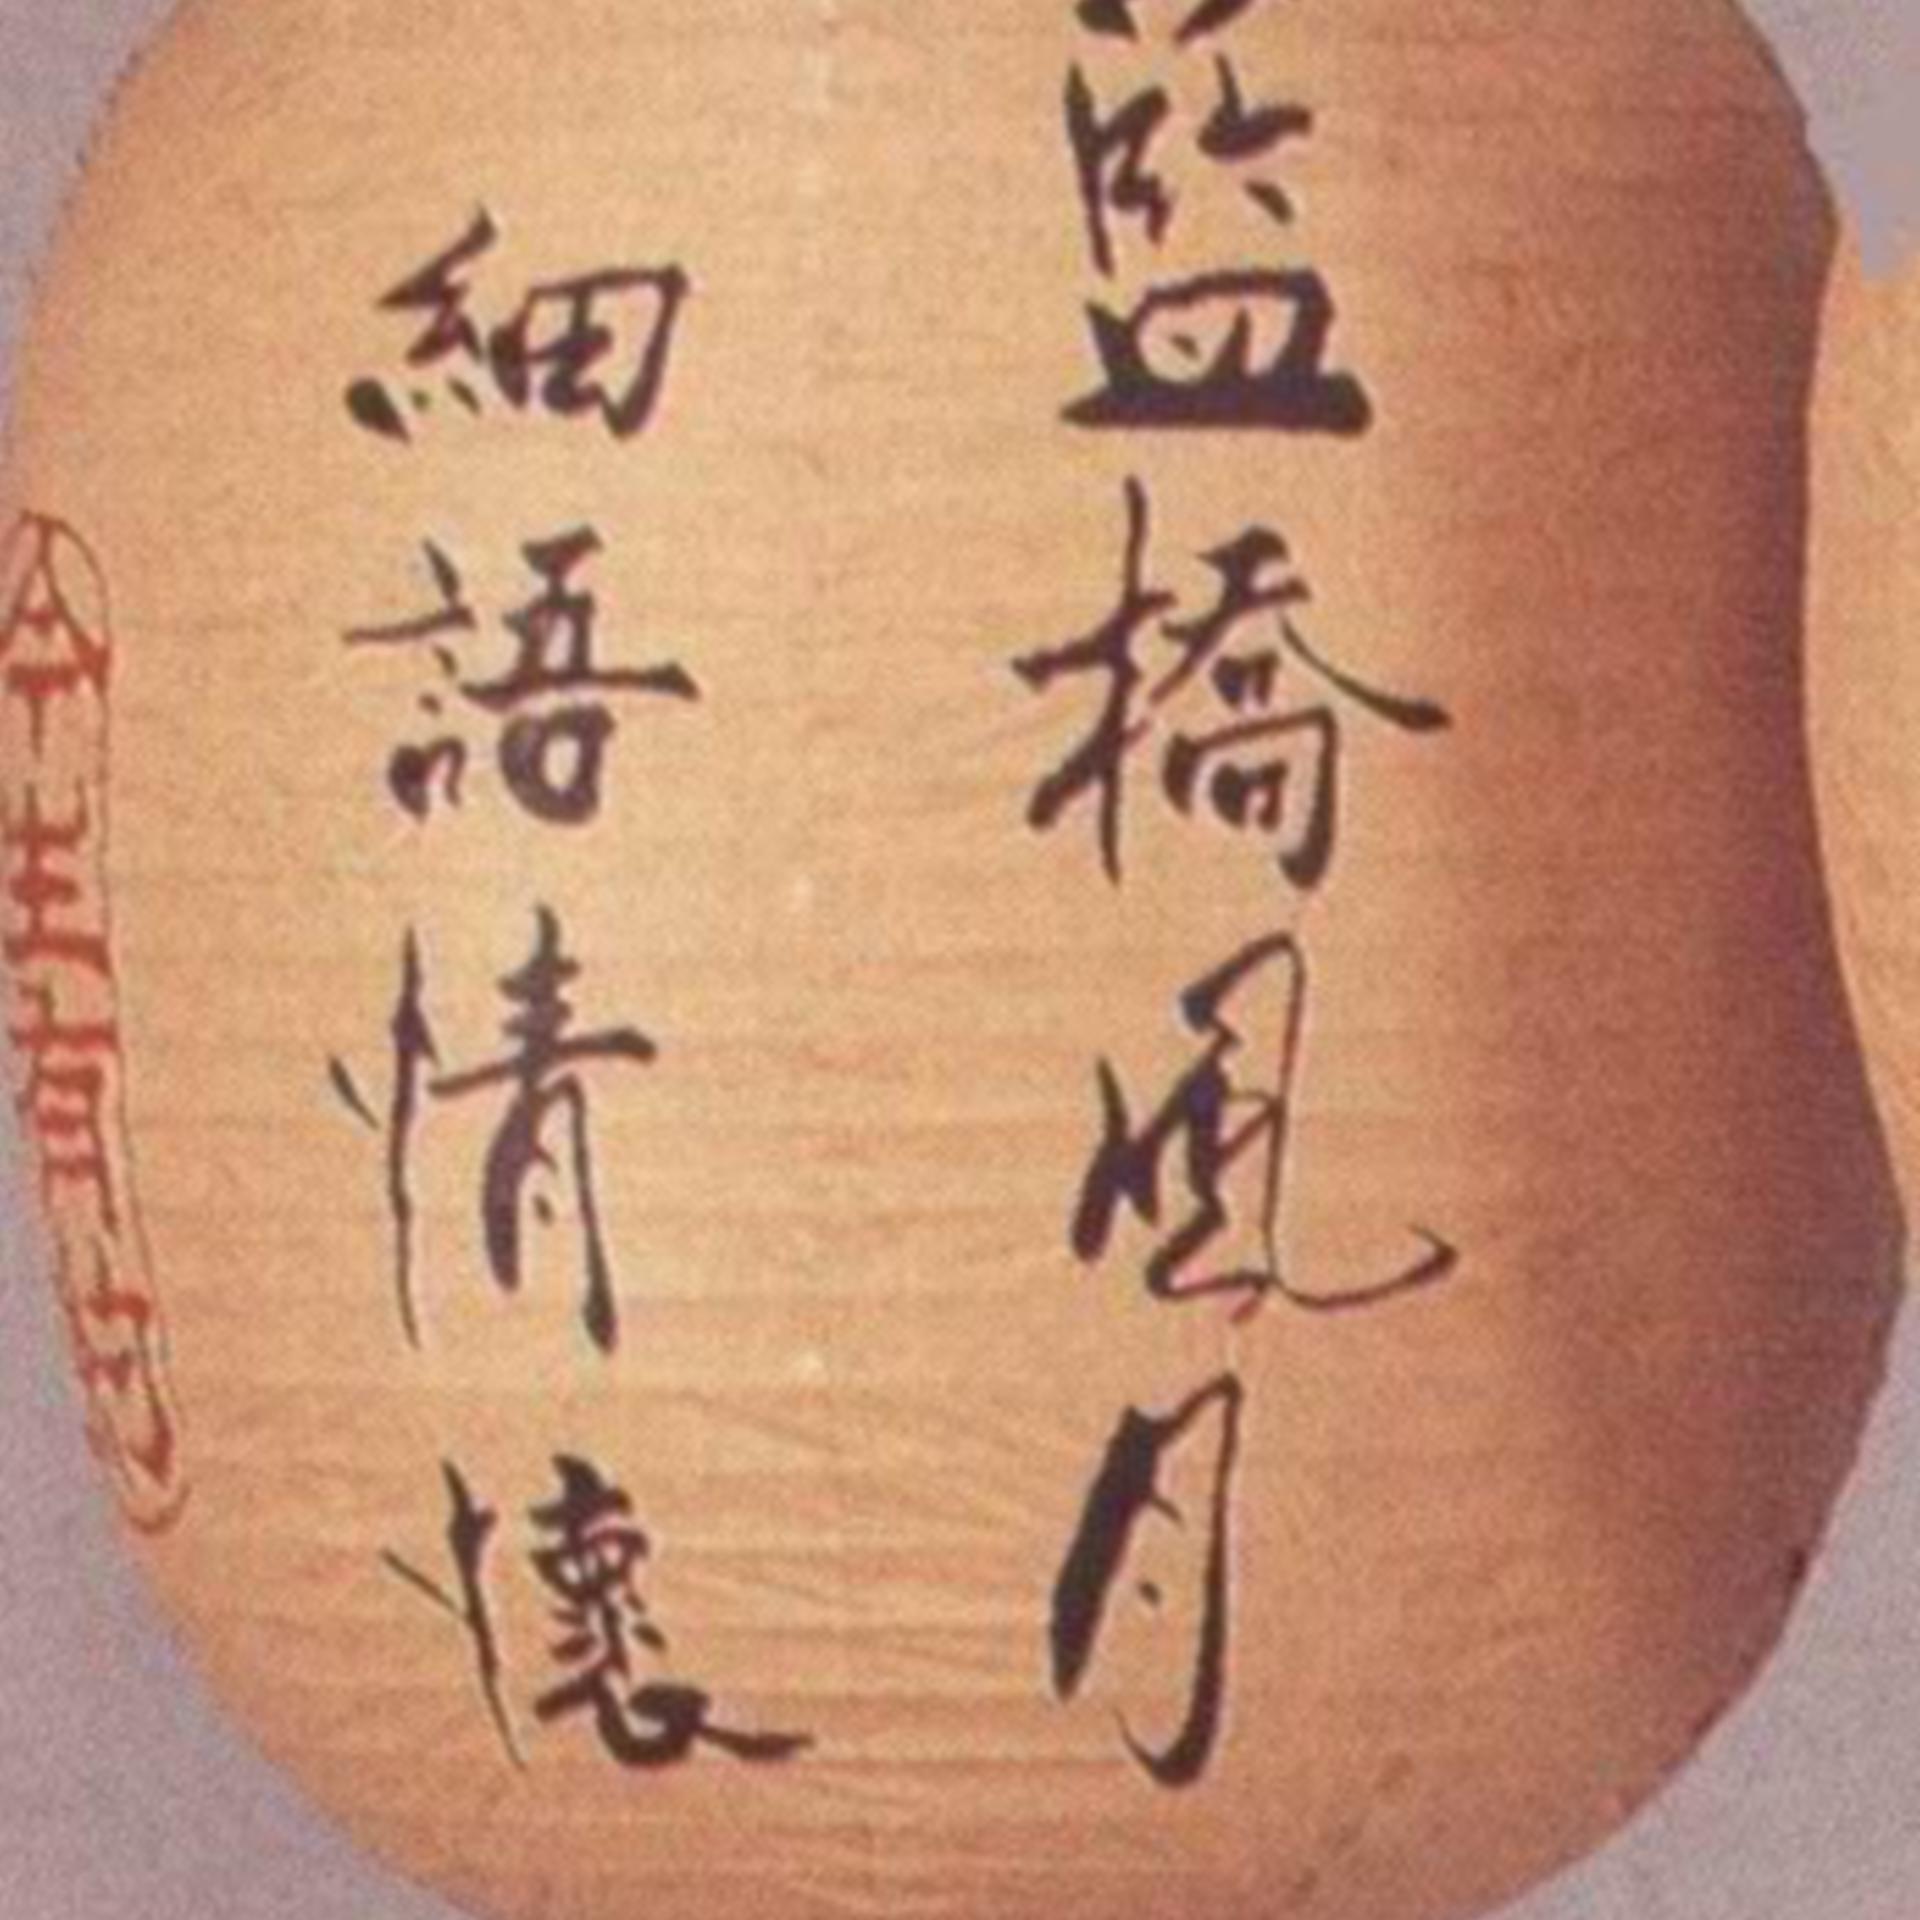 藍橋風月
細語情懷